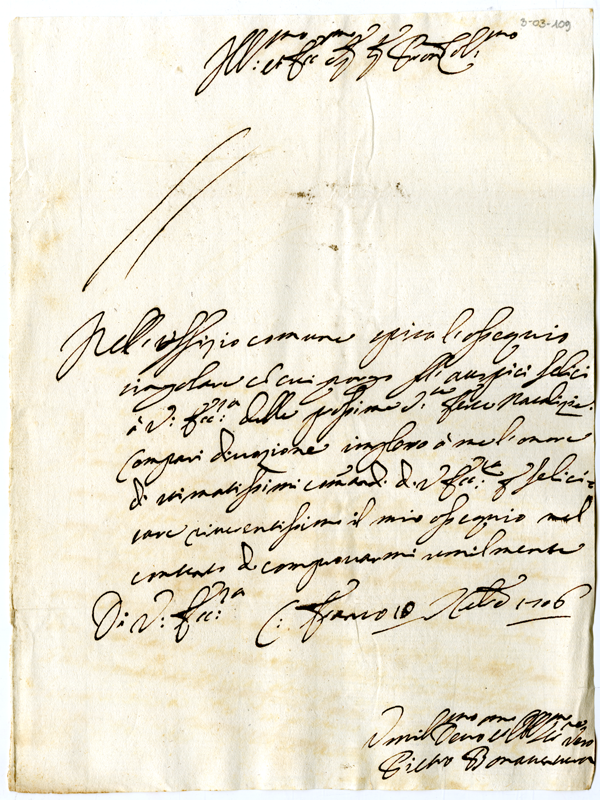 3-03-109
Ill:mo et Ecc:mo Sig:r Sig:r Pron Col:mo
Nell'uffizio comune spicca l'ossequio
singolare con cui porgo gl'auspici felici
à V: Ecc:za delle prossime S:te feste Natalizie.
Compari divozione imploro à me l'onore
di stimatissimi comandi di V: Ecc:za p felici=
tare riverentissimo il mio ossequio nel
contento di comprovarmi umilmente
Di V: Ecc:za C: Franco 10 Xbre 1706
Umil:mo Devo:mo et Obl:mo Ser: vero
Pietro Bonaventura